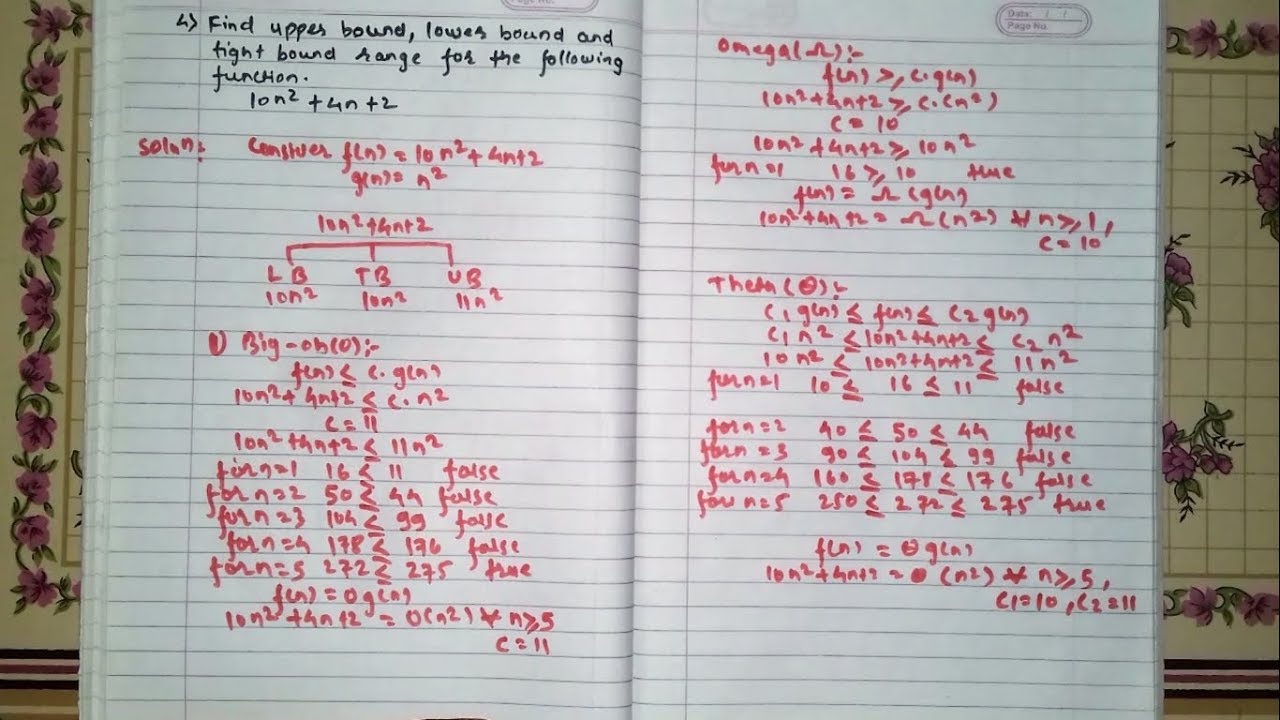 Page No.
4) Find upper bound, lower bound and
tight bound range for the following
function.
10n² + 4n + 2
Soln:
Consider f(n) = 10n² + 4n+2
g(n) = n²
10n²+4n+2
LB TB UB
10n² 10n² 11n²
1) Big-oh(O):-
f(n) ≤ c.g(n)
10n² + 4n+2 ≤ c.n²
c = 11
10n² + 4n+2 ≤ 11n²
for n=1 16 ≤ 11 false
for n=2 50 ≤ 44 false
for n=3 104 ≤ 99 false
for n=4 178 ≤ 176 false
for n=5 272 ≤ 275 true
f(n) = O g(n)
10n² + 4n+2 = O(n²) ∀ n≥5
c = 11
Date: / /
Page No.
Omega(Ω):-
f(n) ≥ c.g(n)
10n²+4n+2 ≥ c.(n²)
c = 10
10n² + 4n+2 ≥ 10n²
for n=1 16 ≥ 10 true
f(n) = Ω (g(n)
10n² + 4n + 2 = Ω (n²) ∀ n≥1,
c = 10
Theta(θ):-
c₁ g(n) ≤ f(n) ≤ c₂ g(n)
c₁ n² ≤ 10n²+4n+2 ≤ c₂ n²
10n² ≤ 10n²+4n+2 ≤ 11n²
for n=1 10 ≤ 16 ≤ 11 false
for n=2 40 ≤ 50 ≤ 44 false
for n=3 90 ≤ 104 ≤ 99 false
for n=4 160 ≤ 178 ≤ 176 false
for n=5 250 ≤ 272 ≤ 275 true
f(n) = θ g(n)
10n²+4n+2 = θ (n²) ∀ n≥5,
c1=10, c2=11